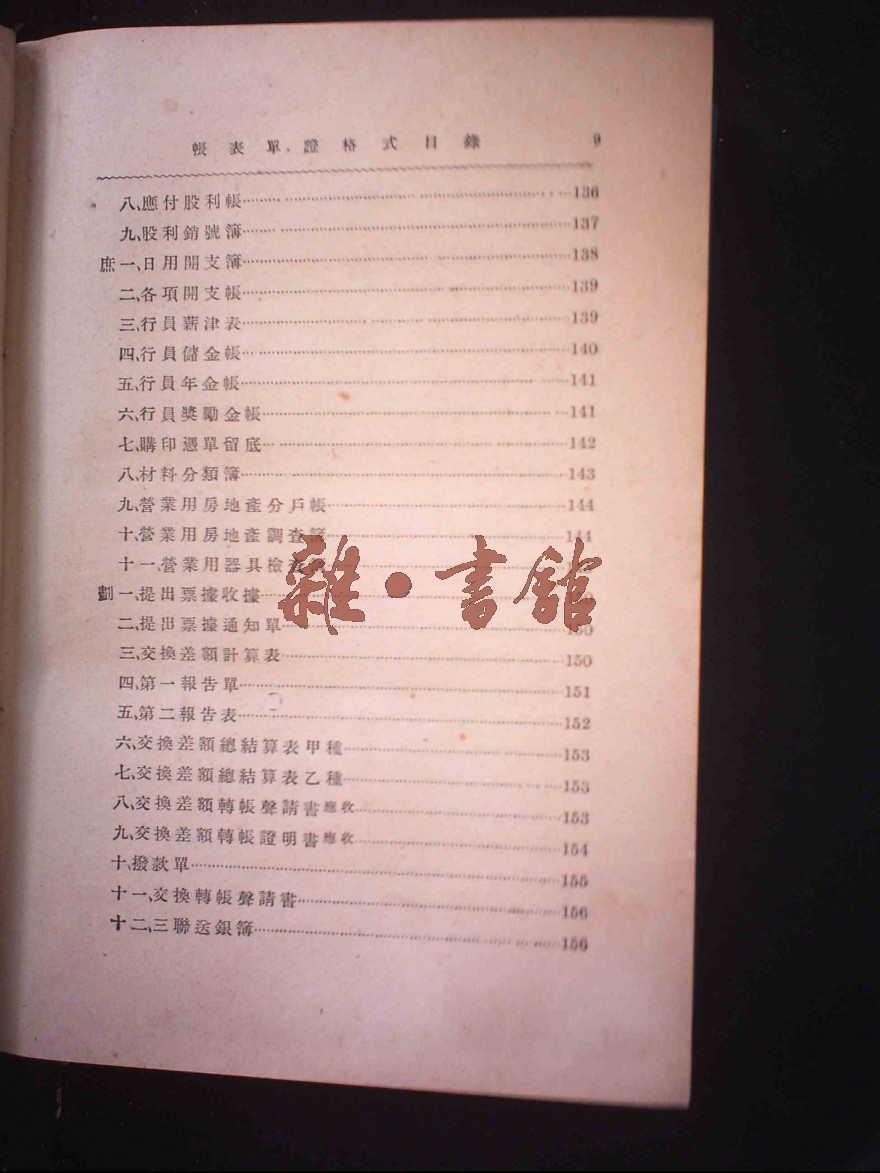 帳表單證格式目錄 9
八、應付股利帳 136
九、股利銷號簿 137
庶一、日用開支簿 138
二、各項開支帳 139
三、行員薪津表 139
四、行員儲金帳 140
五、行員年金帳 141
六、行員獎勵金帳 141
七、購印選單留底 142
八、材料分類簿 143
九、營業用房地產分戶帳 144
十、營業用房地產調查簿 144
十一、營業用器具檢
劃一、提出票據收據
二、提出票據通知單 150
三、交換差額計算表 150
四、第一報告單 151
五、第二報告表 152
六、交換差額總結算表甲種 153
七、交換差額總結算表乙種 153
八、交換差額轉帳聲請書應收 153
九、交換差額轉帳證明書應收 154
十、撥款單 155
十一、交換轉帳聲請書 156
十二、三聯送銀簿 156
雜·書館